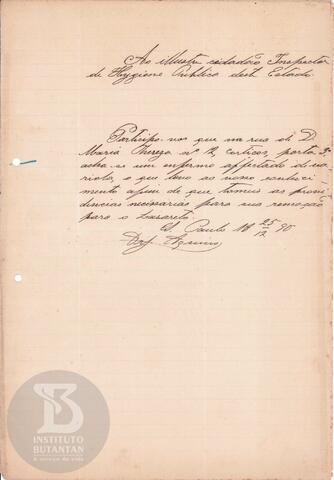 Ao Illustre cidadão Inspector
de Hygiene Publica deste Estado
Participo-vos que na rua de D.
Maria Thereza nº 12, cortiço, porta 3
acha-se um enfermo affectado de va-
riola, o que levo ao vosso conheci-
mento afim de que tomeis as provi-
dencias necessarias para sua remoção
para o Lazareto.
S. Paulo 25/12 90
INSTITUTO
BUTANTAN
A serviço da vida